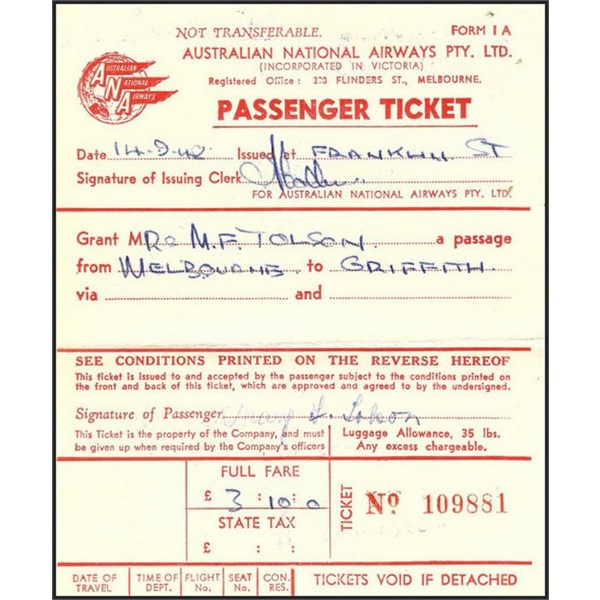 NOT TRANSFERABLE. FORM 1A
AUSTRALIAN NATIONAL AIRWAYS PTY. LTD.
(INCORPORATED IN VICTORIA)
Registered Office: 370 FLINDERS ST., MELBOURNE.
AUSTRALIAN
ANA
NATIONAL
AIRWAYS
PASSENGER TICKET
Date 14.9.48 Issued at FRANKLIN ST
Signature of Issuing Clerk
FOR AUSTRALIAN NATIONAL AIRWAYS PTY. LTD.
Grant MRs M.F. TOLSON a passage
from MELBOURNE to GRIFFITH
via and
SEE CONDITIONS PRINTED ON THE REVERSE HEREOF
This ticket is issued to and accepted by the passenger subject to the conditions printed
on the front and back of this ticket, which are approved and agreed to by the undersigned.
Signature of Passenger Tolson
This Ticket is the property of the Company, and must
be given up when required by the Company's officers
Luggage Allowance, 35 lbs.
Any excess chargeable.
FULL FARE
£ 3 : 10 : 0
STATE TAX
£ : :
TICKET
No 109881
DATE OF TRAVEL
TIME OF DEPT.
FLIGHT No.
SEAT No.
CON. RES.
TICKETS VOID IF DETACHED